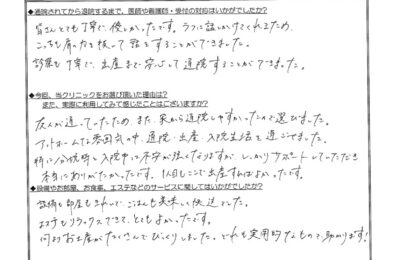 ◆通院されてから退院するまで、医師や看護師・受付の対応はいかがでしたか?
皆さんとても丁寧で、優しかったです。ラフに話しかけてくれるため、
こっちも肩の力を抜いて話をすることができました。
診察も丁寧で、出産まで安心して通院することができました。
◆今回、当クリニックをお選び頂いた理由は?
また、実際に利用してみて感じたことはございますか?
友人が通っていたため、また、家から通院しやすかったので選びました。
アットホームな雰囲気の中、通院・出産・入院生活を過ごせました。
特に分娩時、入院中は不安が強くなりますが、しっかりサポートしていただき
本当にありがたかったです。1人目もここで出産すればよかったです。
◆設備やお部屋、お食事、エステなどのサービスに関してはいかがでしたか?
設備も部屋もきれいで、ごはんも美味しく快適でした。
エステもリラックスできて、とてもよかったです。
何よりお土産がたくさんでびっくりしました。どれも実用的なもので助かります!